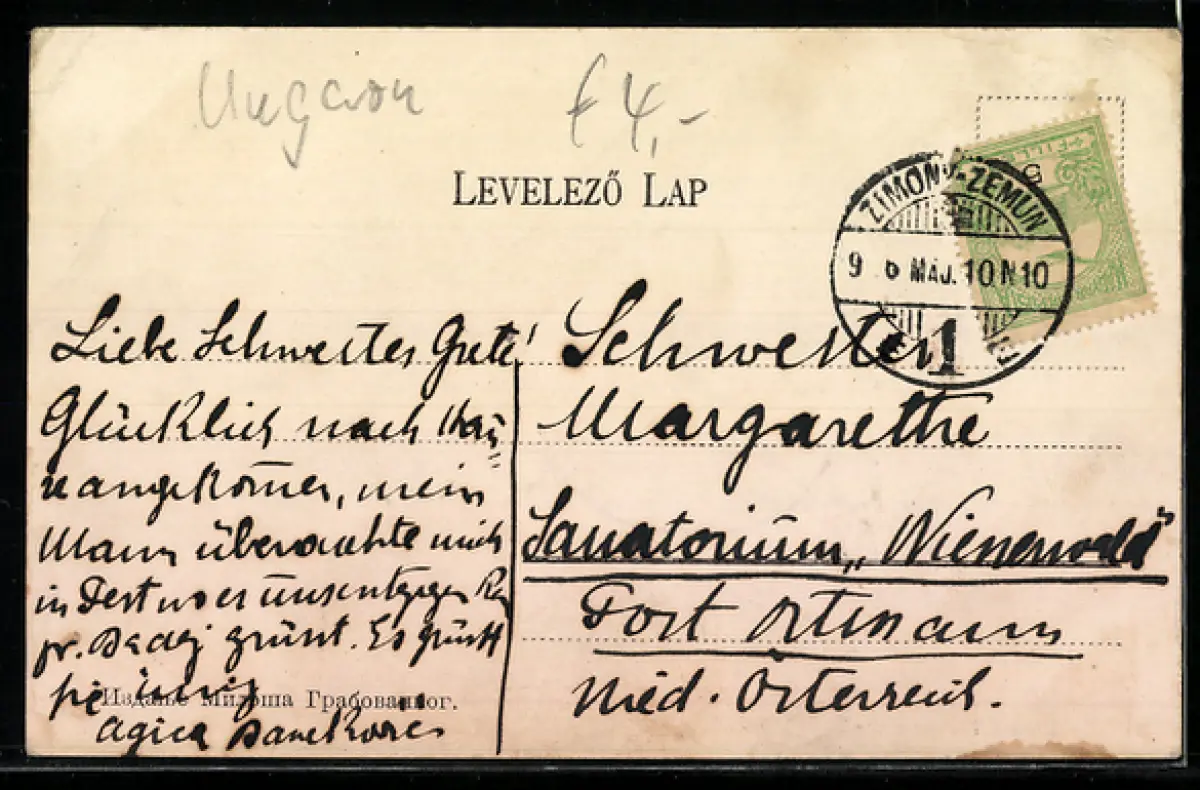 Ungarn
€ 4,-
LEVELEZŐ LAP
ZIMONY-ZEMUN
9 6 MÁJ. 10 N10
1
Liebe Schwester Grete!
Glücklich nach Hau
se angekom̄en, mein
Mann überraschte mich
in Pest wo er uns entgegen
fr. grüsst. Es grüsst
sie innig
Издање Милоша Грабованног.
Agica
Schwester
Margarethe
Sanatorium „Wienerwald"
Post Ortmann
Nied. Österreich.